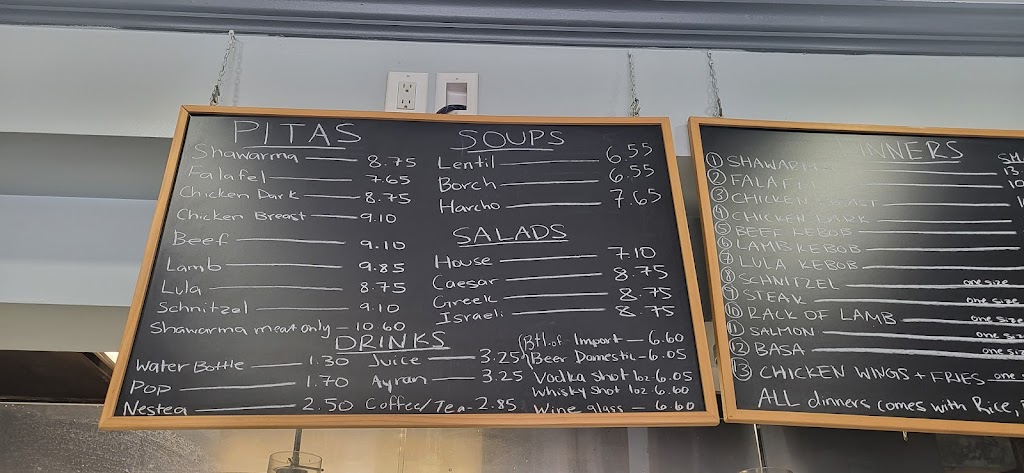 PITAS
Shawarma 8.75
Falafel 7.65
Chicken Dark 8.75
Chicken Breast 9.10
Beef 9.10
Lamb 9.85
Lula 8.75
Schnitzel 9.10
Shawarma meat only - 10 60
SOUPS
Lentil 6.55
Borch 6.55
Harcho 7.65
SALADS
House 7.10
Caesar 8.75
Greek 8.75
Israeli 8.75
DRINKS
Water Bottle 1.30
Pop 1.70
Nestea 2.50
Juice 3.25
Ayran 3.25
Coffee/Tea - 2.85
Btl. of Import - 6.60
Beer Domestic - 6.05
Vodka shot 1oz - 6.05
Whisky shot 1oz 6.60
Wine glass - 6.60
INNERS
① SHAWARM
② FALAF
③ CHICKEN BREAST
④ CHICKEN DARK
⑤ BEEF KEBOB
⑥ LAMB KEBOB
⑦ LULA KEBOB
⑧ SCHNITZEL one size
⑨ STEAK one size
⑩ RACK OF LAMB one size
⑪ SALMON one size
⑫ BASA one size
⑬ CHICKEN WINGS + FRIES one
ALL dinners comes with Rice,